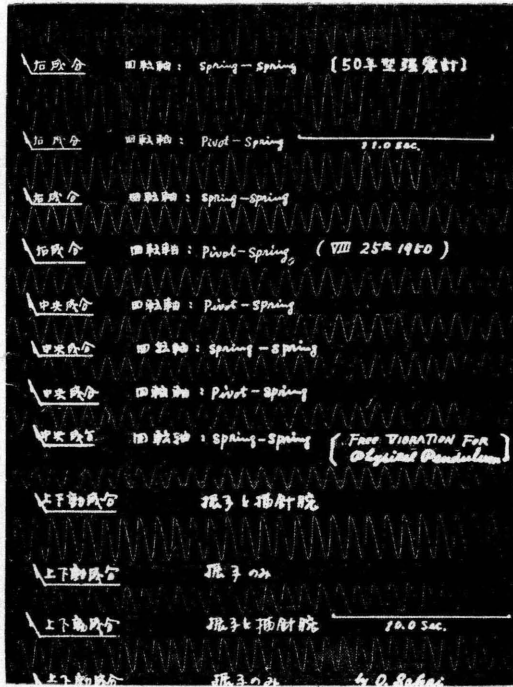 右成分 回転軸: Spring-Spring [50年型強震計]
右成分 回転軸: Pivot-Spring 11.0 Sec.
右成分 回転軸: Spring-Spring
右成分 回転軸: Pivot-Spring (VIII 25th 1950)
中央成分 回転軸: Pivot-Spring
中央成分 回転軸: Spring-Spring
中央成分 回転軸: Pivot-Spring
中央成分 回転軸: Spring-Spring [FREE VIBRATION FOR
Physical Pendulum]
上下動成分 振子と描針腕
上下動成分 振子のみ
上下動成分 振子と描針腕 10.0 Sec.
上下動成分 振子のみ by